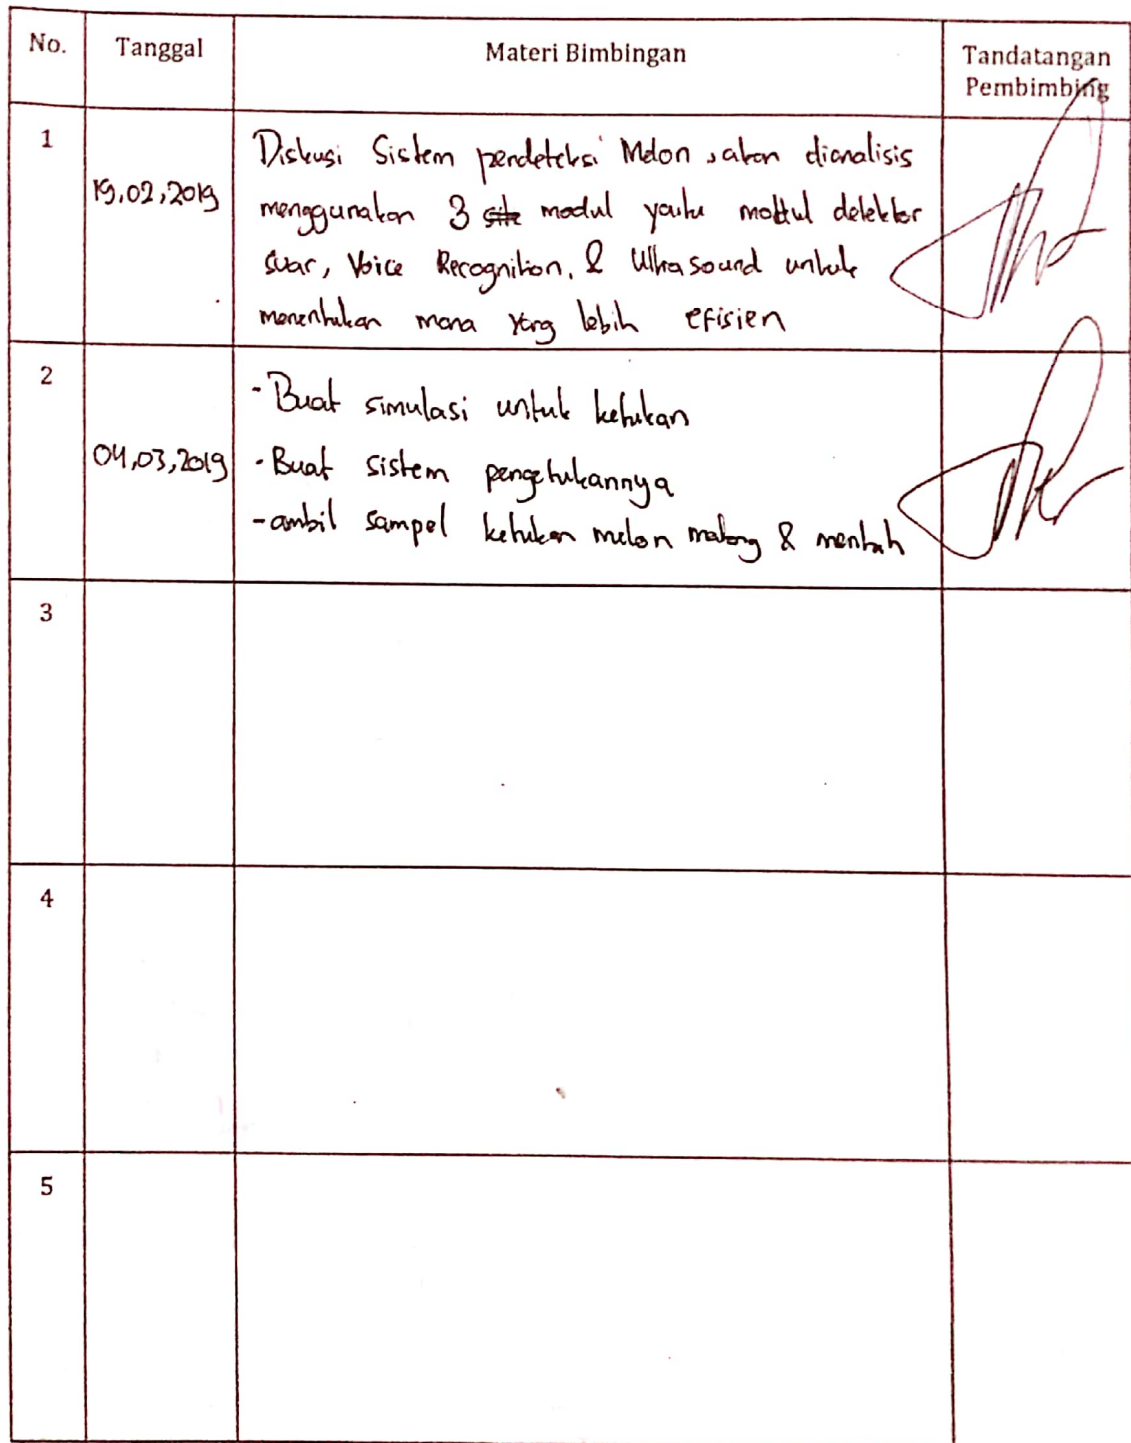 No. Tanggal Materi Bimbingan Tandatangan
Pembimbing
1
19,02,2019
Diskusi Sistem pendeteksi Melon, akan dianalisis
menggunakan 3 modul yaitu modul detektor
suar, Voice Recognition, & Ultrasound untuk
menentukan mana yang lebih efisien
2
04,03,2019
- Buat simulasi untuk ketukan
- Buat sistem pengetukannya
- ambil sampel ketukan melon matang & mentah
3
4
5